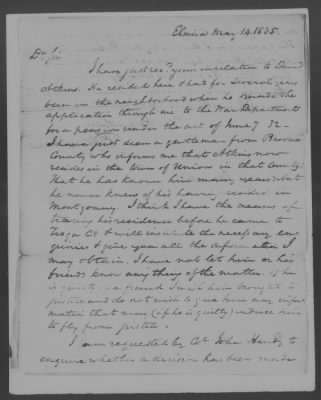 Elmira May 14. 1835.
Dr Sir
I have just recd yours in relation to David
Atkins. He resided here & had for several years
been in the neighborhood when he made the
application through me to the War Department
for a pension under the act of June 7 32 -
I have just seen a gentleman from Broome
County who informs me that Atkins now
resides in the town of in that County.
That he has known him many years but
he never knew of his having resided in
Montgomery. I think I have the means of
his residence before he came to
Tioga Co & will the necessary en-
quiries & give you all the information I
may obtain. I have not let him or his
friends know any thing of the matter. If he
is guilty of a fraud I wish him brought to
justice and do not wish to give him any infor-
mation that may (if he is guilty) induce him
to fly from justice.
I am requested by Col John Hendy to
enquire whether a decision has been made